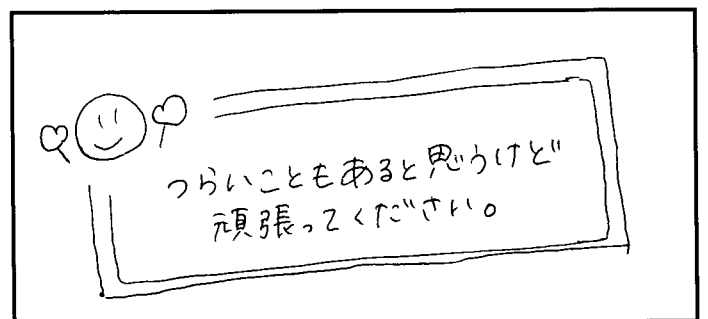 つらいこともあると思うけど
頑張ってください。